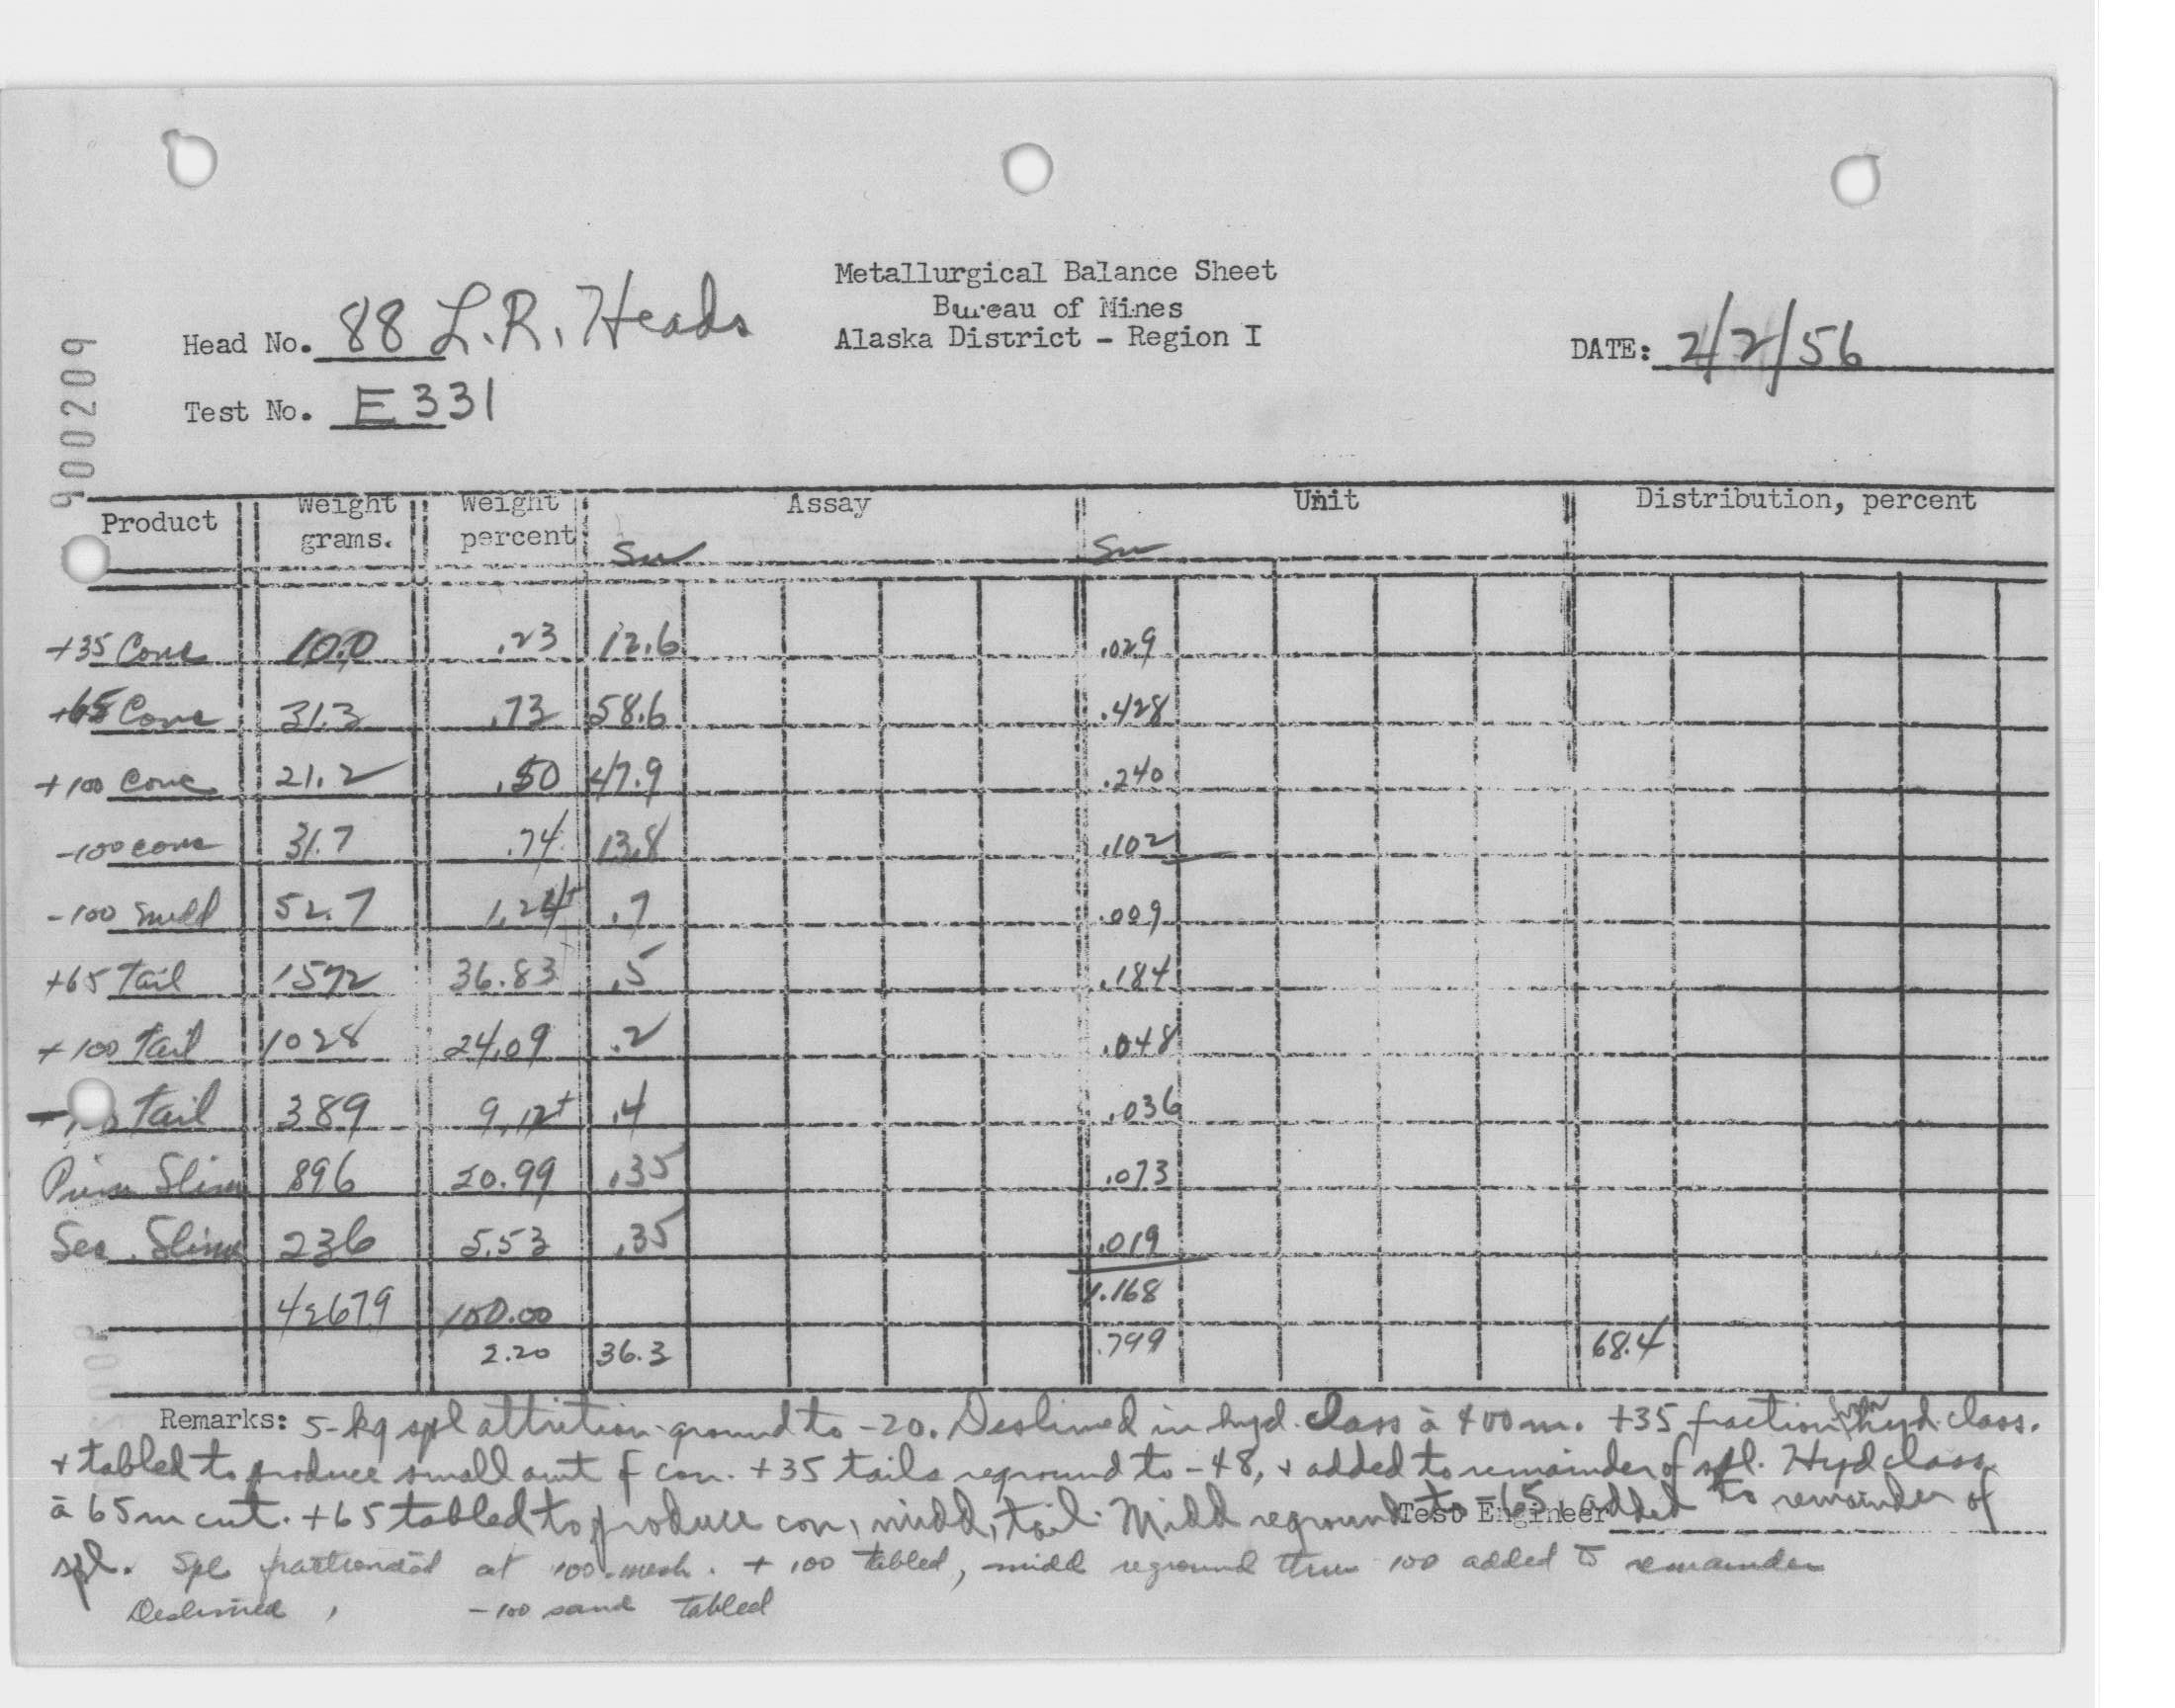 Metallurgical Balance Sheet
Bureau of Mines
Alaska District - Region I
Head No. 88 L.R. Heads
DATE: 2/2/56
Test No. E331
900209
Product Weight grams. Weight percent Assay Unit Distribution, percent
Sn Sn
+35 Conc 10.0 .23 12.6 .029
+65 Conc 31.3 .73 58.6 .428
+100 Conc 21.2 .50 47.9 .240
-100 conc 31.7 .74 13.8 .102
-100 midd 52.7 1.24+ .7 .009
+65 Tail 1572 36.83 .5 .184
+100 Tail 1028 24.09 .2 .048
Tail 389 9.12+ .4 .036
Prim Slime 896 20.99 .35 .073
Sec. Slime 236 5.53 .35 .019
4267.9 100.00 1.168
2.20 36.3 .799 68.4
Remarks: 5-kg spl attrition-ground to -20. Deslimed in hyd. class à 400 m. +35 fraction from hyd. class.
+ tabled to produce small amt of con. +35 tails reground to -48, + added to remainder of spl. Hyd class
à 65 m cut. +65 tabled to produce con, midd, tail. Midd reground to -65 added to remainder of
Test Engineer
spl. Spl fractionated at 100 mesh. +100 tabled, midd reground thru 100 added to remainder
Deslimed, -100 sand tabled